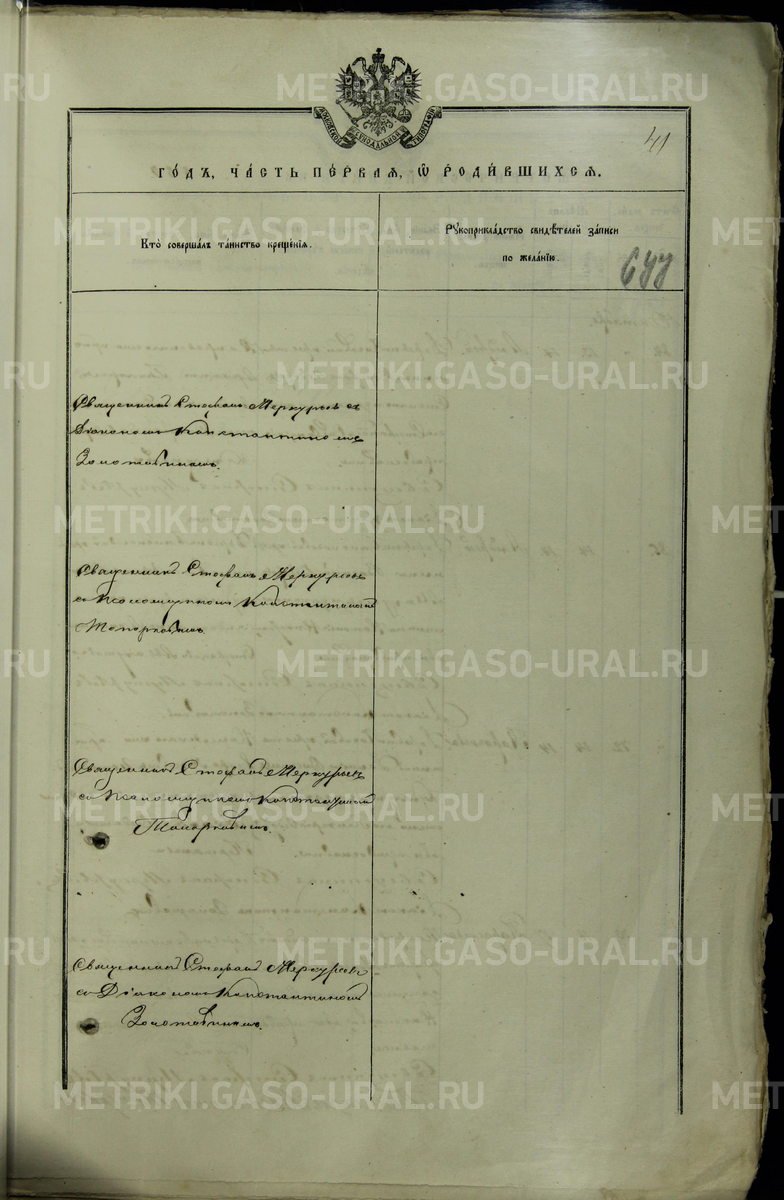 МОСКОВСКОЙ СѴНОДАЛЬНОЙ ТИПОГРАФІИ
41
ГО́ДЪ, ЧА́СТЬ ПЕ́РВАЯ, Ѡ РОДИ́ВШИХСЯ.
Кто̀ соверша́лъ та́инство креще́нїя.
Рꙋкоприкла́дство свидѣ́телей за́писи
по жела́нїю.
644
Священникъ Стефанъ Меркурьевъ съ
Діакономъ Константиномъ
Золотавинымъ.
Священникъ Стефанъ Меркурьевъ
съ Псаломщикомъ Константиномъ
Топорковымъ.
Священникъ Стефанъ Меркурьевъ
съ Псаломщикомъ Константиномъ
Топорковымъ.
Священникъ Стефанъ Меркурьевъ
съ Діакономъ Константиномъ
Золотавинымъ.
METRIKI.GASO-URAL.RU